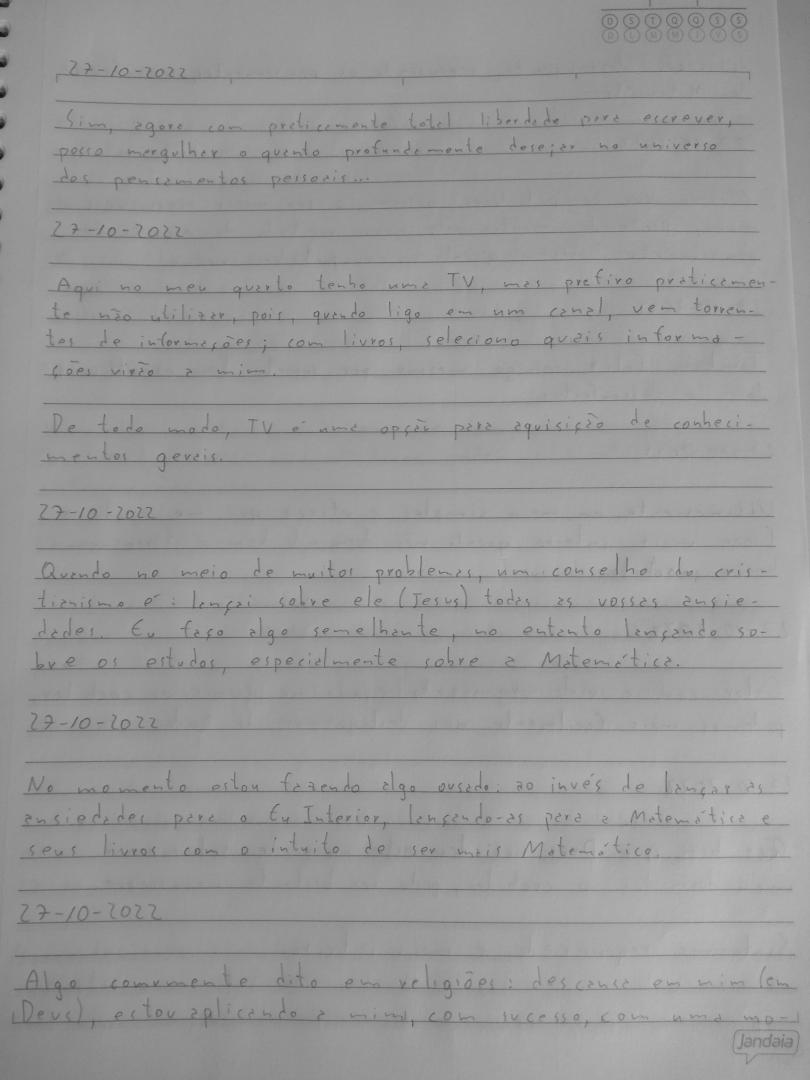 D S T Q Q S S
D L M M J V S
27-10-2022
Sim, agora com praticamente total liberdade para escrever,
posso mergulhar o quanto profundamente desejar no universo
dos pensamentos pessoais...
27-10-2022
Aqui no meu quarto tenho uma TV, mas prefiro praticamen-
te não utilizar, pois, quando ligo em um canal, vem torren-
tes de informações; com livros, seleciono quais informa-
ções virão a mim.
De todo modo, TV é uma opção para aquisição de conheci-
mentos gerais.
27-10-2022
Quando no meio de muitos problemas, um conselho do cris-
tianismo é: lançai sobre ele (Jesus) todas as vossas ansie-
dades. Eu faço algo semelhante, no entanto lançando so-
bre os estudos, especialmente sobre a Matemática.
27-10-2022
No momento estou fazendo algo ousado: ao invés de lançar as
ansiedades para o Eu Interior, lançando-as para a Matemática e
seus livros com o intuito de ser mais Matemático.
27-10-2022
Algo comumente dito em religiões: descansa em mim (em
Deus), estou aplicando a mim, com sucesso, com uma mo-
Jandaia